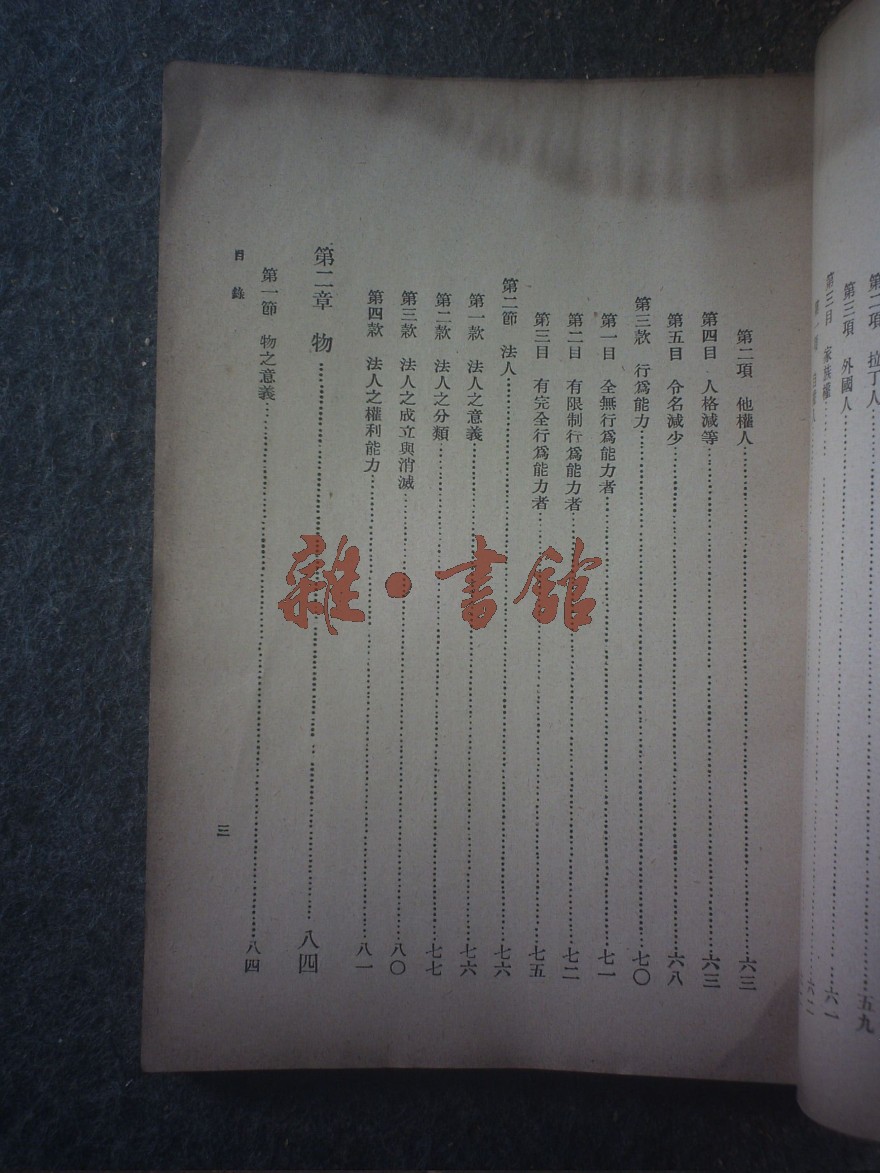 第二項　拉丁人……五九
第三項　外國人……六一
第三目　家族權……六二
第二項　他權人……六三
第四目　人格減等……六三
第五目　令名減少……六八
第三款　行爲能力……七〇
第一目　全無行爲能力者……七一
第二目　有限制行爲能力者……七二
第三目　有完全行爲能力者……七五
第二節　法人……七六
第一款　法人之意義……七六
第二款　法人之分類……七七
第三款　法人之成立與消滅……八〇
第四款　法人之權利能力……八一
第二章　物……八四
第一節　物之意義……八四
目錄
三
雜·書館